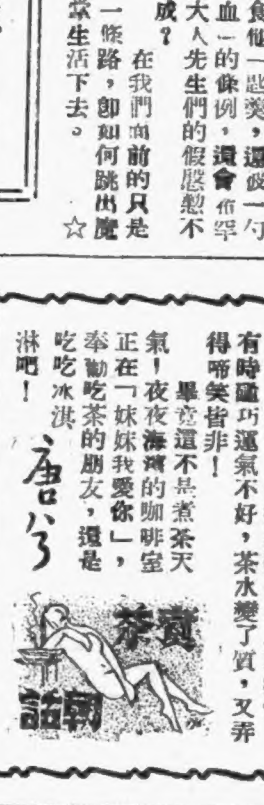 食他一匙羹,還彼一勺
血﹂的條例,還會希罕
大人先生們的假慇懃不
成?
在我們面前的只是
一條路,即如何跳出魔
掌生活下去。 ☆
有時碰巧運氣不好,茶水變了質,又弄
得啼笑皆非!
畢竟還不是煮茶天
氣!夜夜海濱的咖啡室
正在「妹妹我愛你」,
奉勸吃茶的朋友,還是
吃吃冰淇
淋吧!
唐
賣茶
朝話